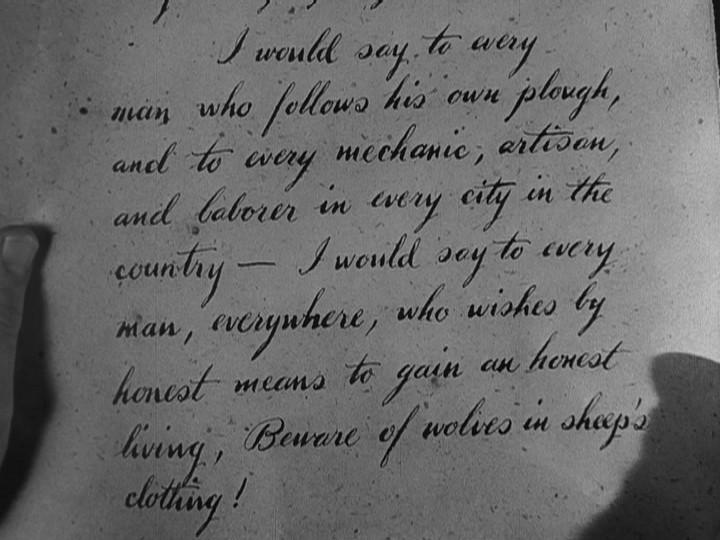 I would say to every
man who follows his own plough,
and to every mechanic, artisan,
and laborer in every city in the
country — I would say to every
man, everywhere, who wishes by
honest means to gain an honest
living, Beware of wolves in sheep's
clothing!